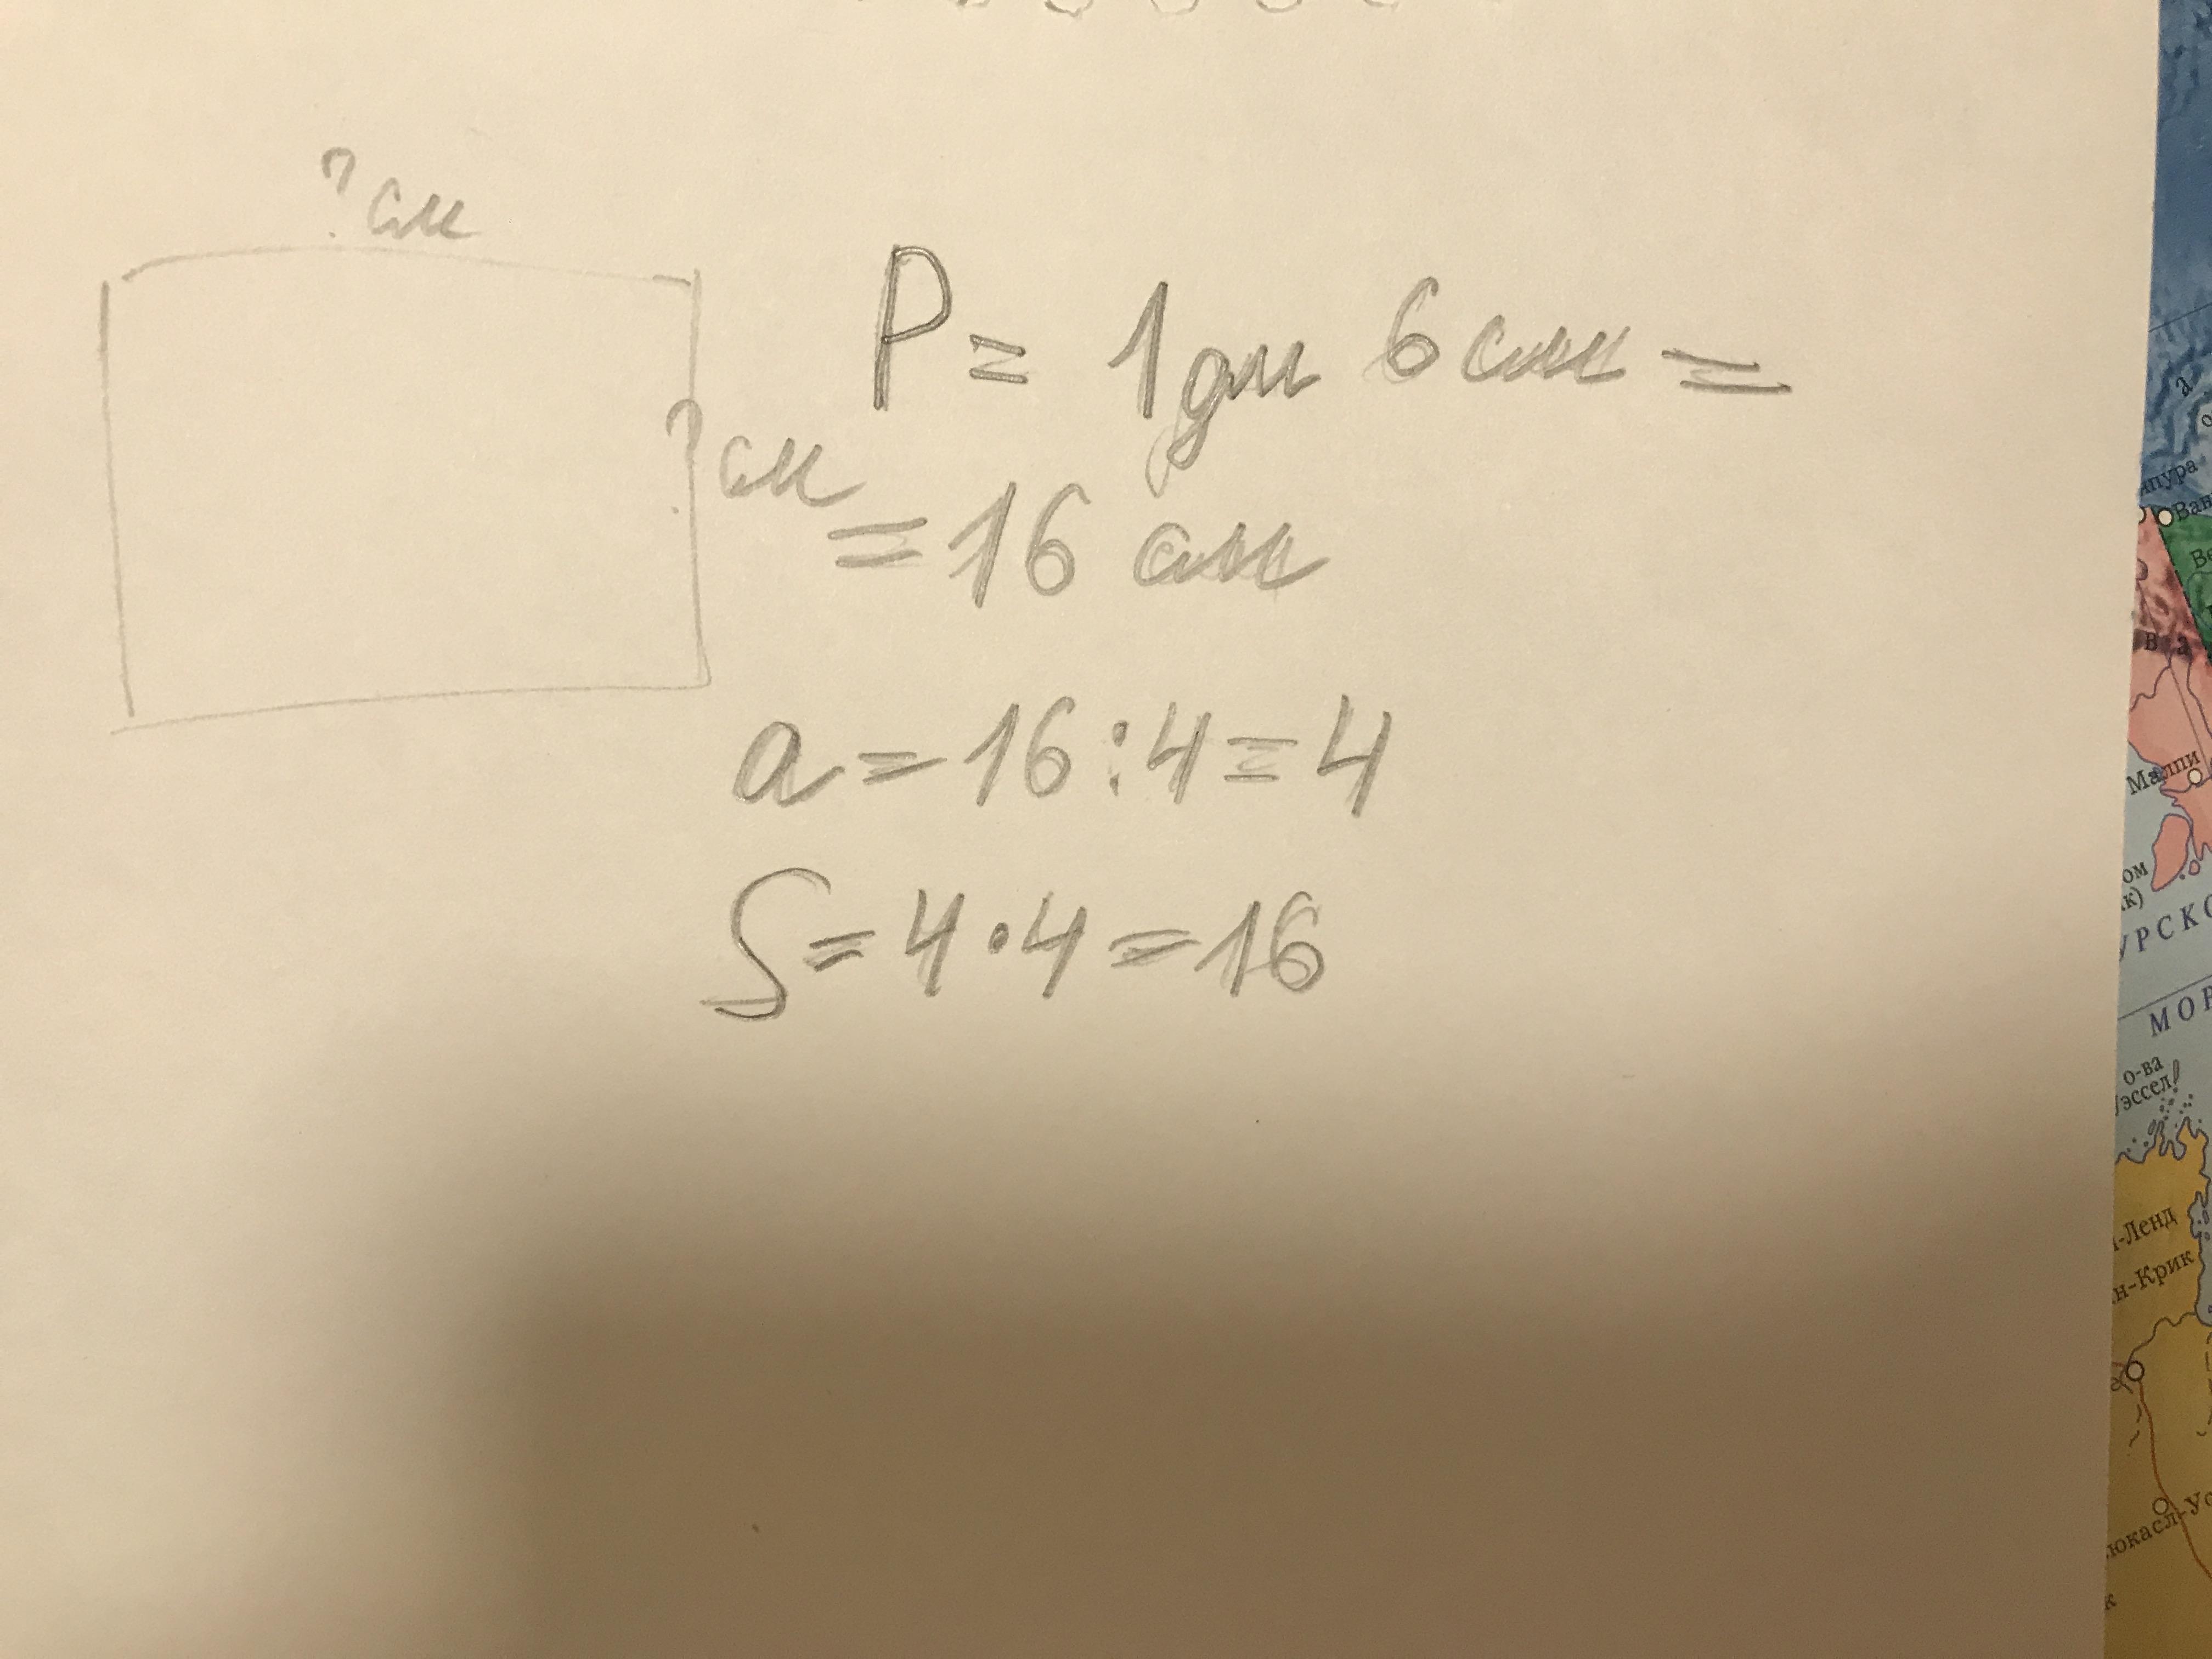 ? см
P = 1 дм 6 см =
? см
= 16 см
a = 16 : 4 = 4
S = 4 · 4 = 16
а
о
Ван
Ве
В а
Малпи
ом
к)
УРСКО
МОР
о-ва
эссел
-Ленд
н-Крик
юкасл-Ус
к